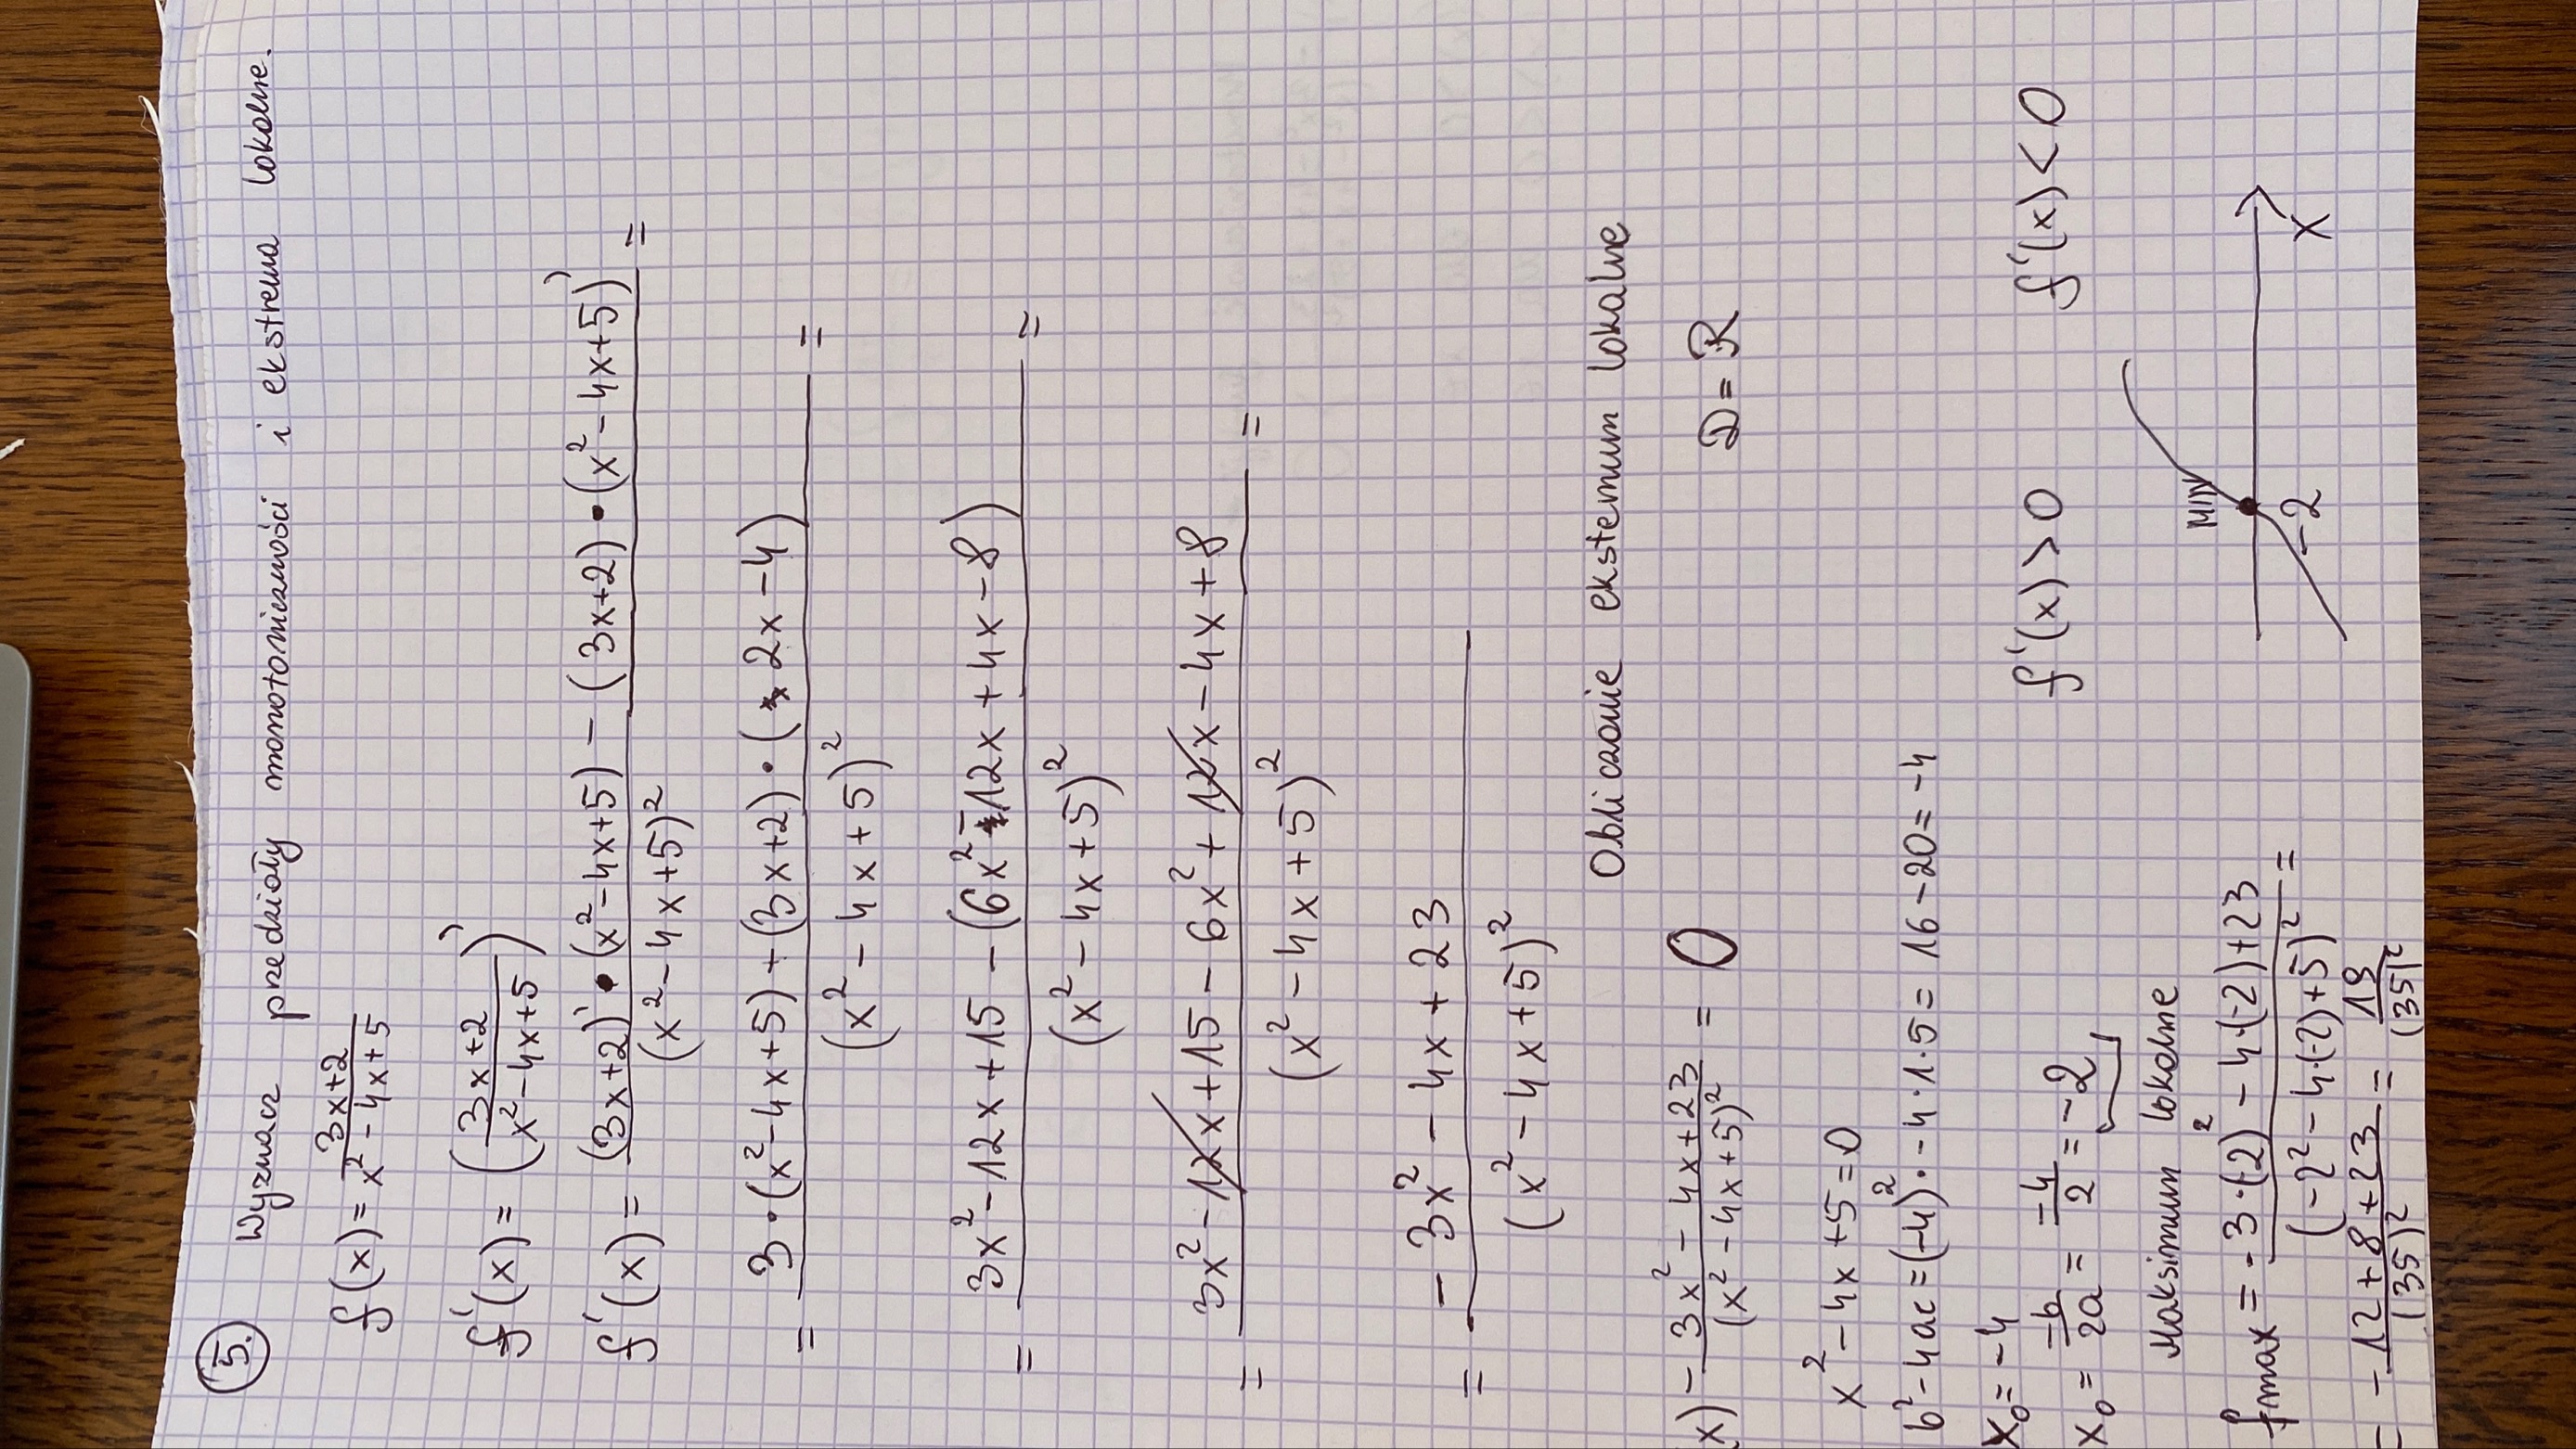 5. Wyznacz przedziały monotoniczności i ekstrema lokalne.
f(x) = (3x+2)/(x² - 4x + 5)
f'(x) = ((3x+2)/(x² - 4x + 5))'
f'(x) = ((3x+2)' • (x² - 4x + 5) - (3x+2) • (x² - 4x + 5)')/(x² - 4x + 5)² =
= (3 · (x² - 4x + 5) + (3x + 2) · (2x - 4))/(x² - 4x + 5)² =
= (3x² - 12x + 15 - (6x² - 12x + 4x - 8))/(x² - 4x + 5)² =
= (3x² - 12x + 15 - 6x² + 12x - 4x + 8)/(x² - 4x + 5)² =
= (-3x² - 4x + 23)/(x² - 4x + 5)²
Obliczanie ekstemum lokalne
x) - (3x² - 4x + 23)/(x² - 4x + 5)² = 0 D = R
x² - 4x + 5 = 0
b² - 4ac = (-4)² · -4 · 1 · 5 = 16 - 20 = -4
x₀ = -4
f'(x) > 0 f'(x) < 0
x₀ = -b/2a = -4/2 = -2
MIN
-2
x
Maksimum lokalne
fmax = (-3 · (-2)² - 4 · (-2) + 23)/(-2² - 4 · (-2) + 5)² =
= (-12 + 8 + 23)/(35)² = 19/(35)²